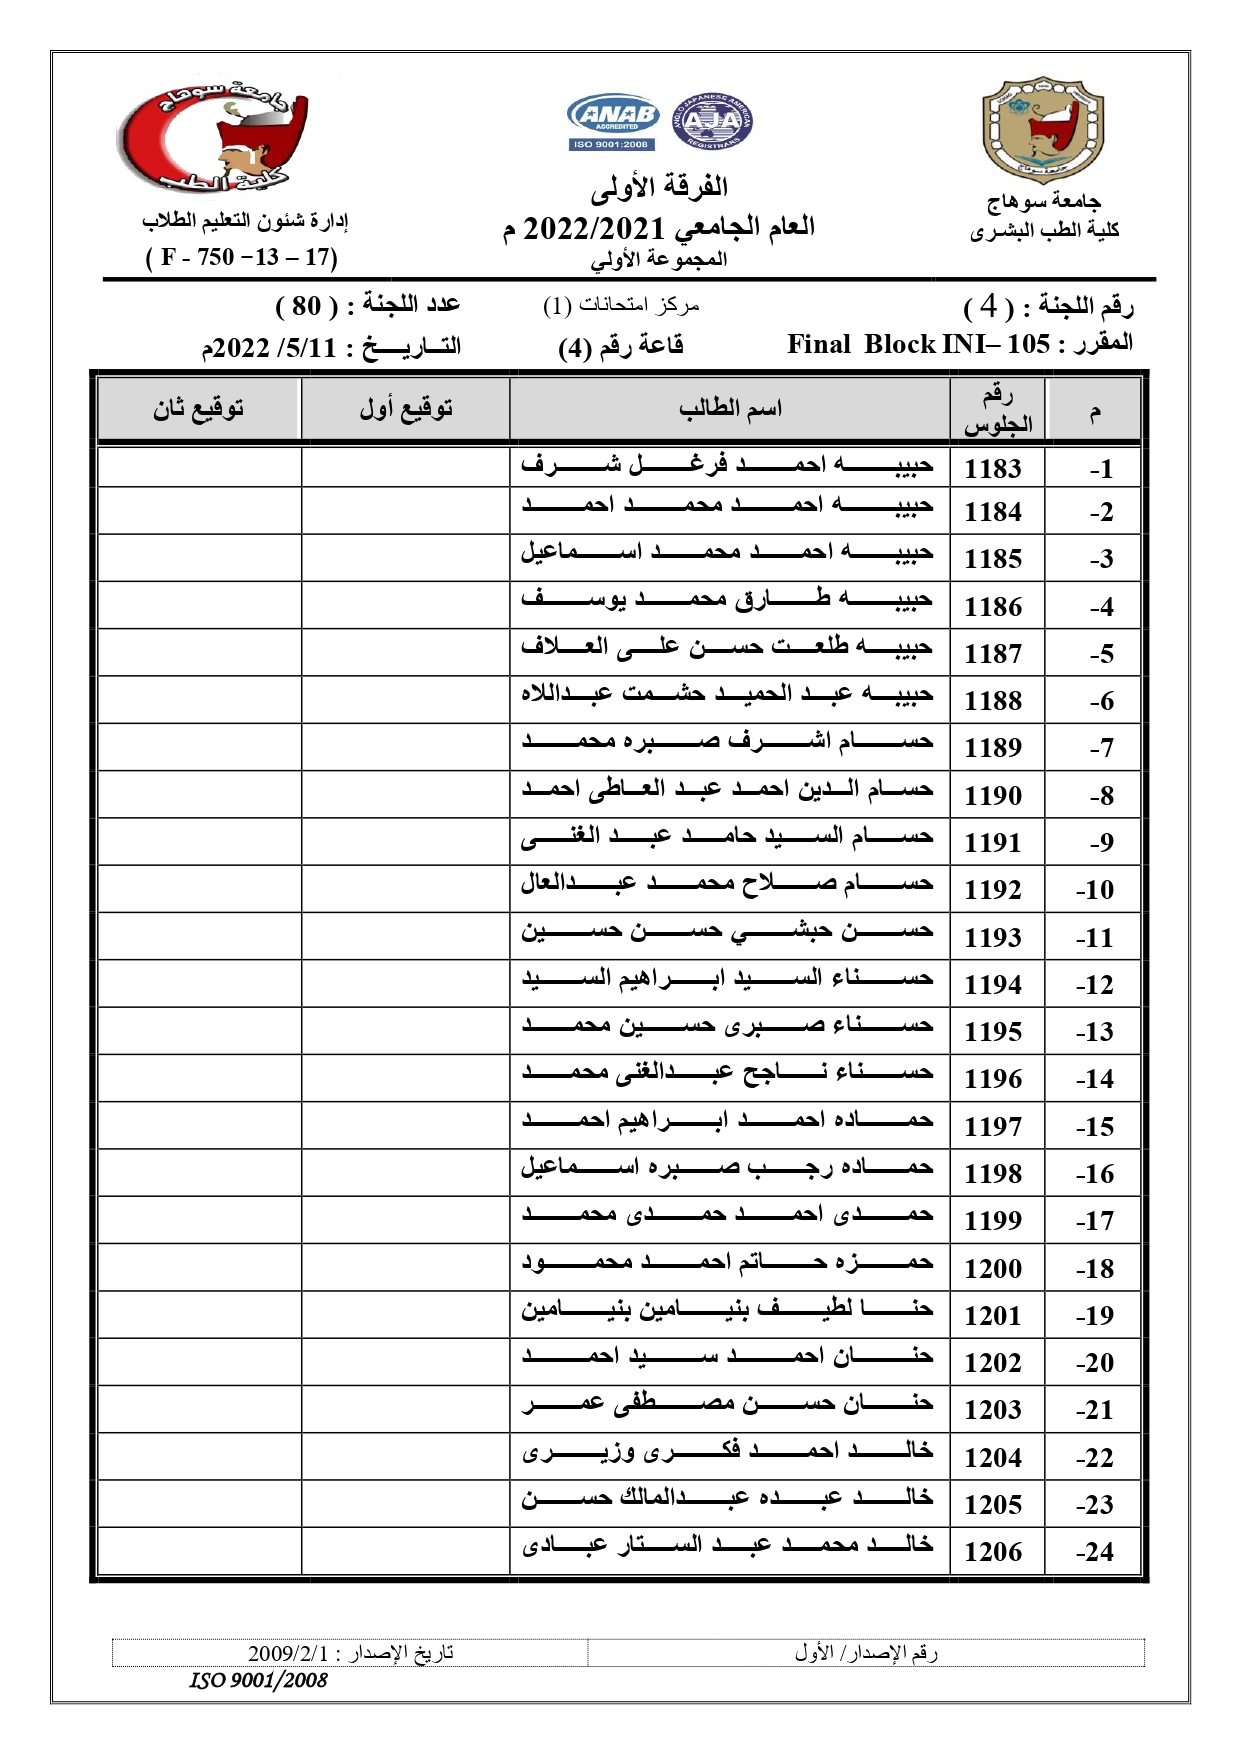 جامعة سوهاج
كلية الطب
ANAB
ACCREDITED
ISO 9001:2008
ANGLO JAPANESE AMERICAN
AJA
REGISTRARS
جامعة سوهاج
جامعة سوهاج
كلية الطب البشرى
الفرقة الأولى
العام الجامعي 2022/2021 م
المجموعة الأولي
إدارة شئون التعليم الطلاب
( F - 750 –13 – 17)
رقم اللجنة : ( 4 ) مركز امتحانات (1) عدد اللجنة : ( 80 )
المقرر : Final Block INI– 105 قاعة رقم (4) التاريخ : 5/11/ 2022م
م رقم الجلوس اسم الطالب توقيع أول توقيع ثان
1- 1183 حبيبه احمد فرغل شرف
2- 1184 حبيبه احمد محمد احمد
3- 1185 حبيبه احمد محمد اسماعيل
4- 1186 حبيبه طارق محمد يوسف
5- 1187 حبيبه طلعت حسن على العلاف
6- 1188 حبيبه عبد الحميد حشمت عبداللاه
7- 1189 حسام اشرف صبره محمد
8- 1190 حسام الدين احمد عبد العاطى احمد
9- 1191 حسام السيد حامد عبد الغنى
10- 1192 حسام صلاح محمد عبدالعال
11- 1193 حسن حبشي حسن حسين
12- 1194 حسناء السيد ابراهيم السيد
13- 1195 حسناء صبرى حسين محمد
14- 1196 حسناء ناجح عبدالغنى محمد
15- 1197 حماده احمد ابراهيم احمد
16- 1198 حماده رجب صبره اسماعيل
17- 1199 حمدى احمد حمدى محمد
18- 1200 حمزه حاتم احمد محمود
19- 1201 حنا لطيف بنيامين بنيامين
20- 1202 حنان احمد سيد احمد
21- 1203 حنان حسن مصطفى عمر
22- 1204 خالد احمد فكرى وزيرى
23- 1205 خالد عبده عبدالمالك حسن
24- 1206 خالد محمد عبد الستار عبادى
رقم الإصدار/ الأول تاريخ الإصدار : 2009/2/1
ISO 9001/2008